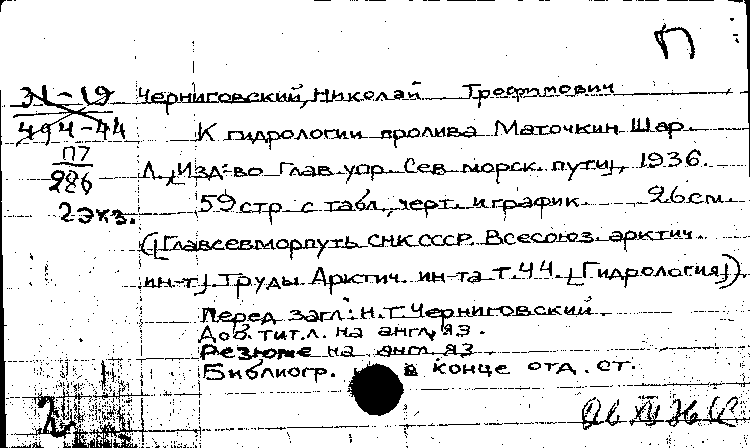 П
31-19 Черниговский, Николай Трофимович
494-44 К гидрологии пролива Маточкин Шар.
П7 Л., Изд-во Глав. упр. Сев. морск. пути, 1936.
286 59 стр. с табл., черт. и график. 26 см.
2 экз. (Главсевморпуть СНК СССР. Всесоюз. арктич.
ин-т. Труды Арктич. ин-та т. 44. [Гидрология]).
Перед загл.: Н.Т. Черниговский.
Доб. тит. л. на англ. яз.
Резюме на англ. яз.
Библиогр. в конце отд. ст.
2